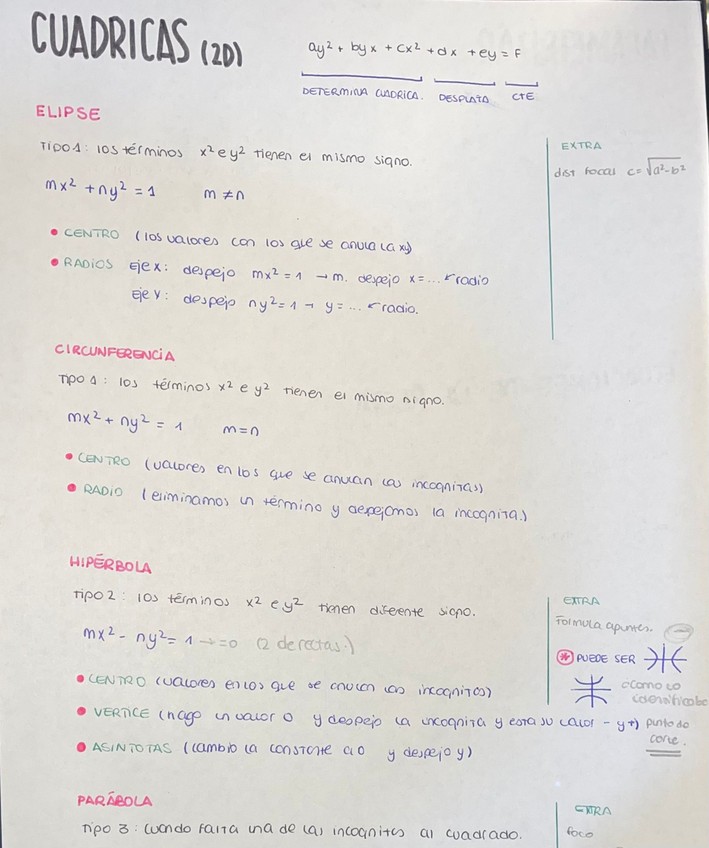 CUADRICAS (2D)
ay² + byx + cx² + dx + ey = F
DETERMINA CUADRICA. DESPLAZA CTE
ELIPSE
TIPO 1: los términos x² e y² tienen el mismo signo.
mx² + ny² = 1 m ≠ n
• CENTRO (los valores con los que se anula la xy)
• RADIOS Eje x: despejo mx² = 1 → m. despejo x = ... ← radio
Eje y: despejo ny² = 1 → y = ... ← radio.
EXTRA
dist focal c = √a²-b²
CIRCUNFERENCIA
Tipo 1: los términos x² e y² tienen el mismo signo.
mx² + ny² = 1 m = n
• CENTRO (valores en los que se anulan las incognitas)
• RADIO (eliminamos un término y despejamos la incognita.)
HIPÉRBOLA
Tipo 2: los términos x² e y² tienen diferente signo.
mx² - ny² = 1 → = 0 (2 de rectas.)
• CENTRO (valores en los que se anulan las incognitas)
• VERTICE (hago un valor 0 y despejo la incognita y esta su valor - y +) punto de
corte.
• ASINTOTAS (cambio la constante a 0 y despejo y)
EXTRA
Formula apuntes.
* PUEDE SER
o como lo
PARÁBOLA
Tipo 3: cuando falta una de las incognitas al cuadrado.
EXTRA
foco